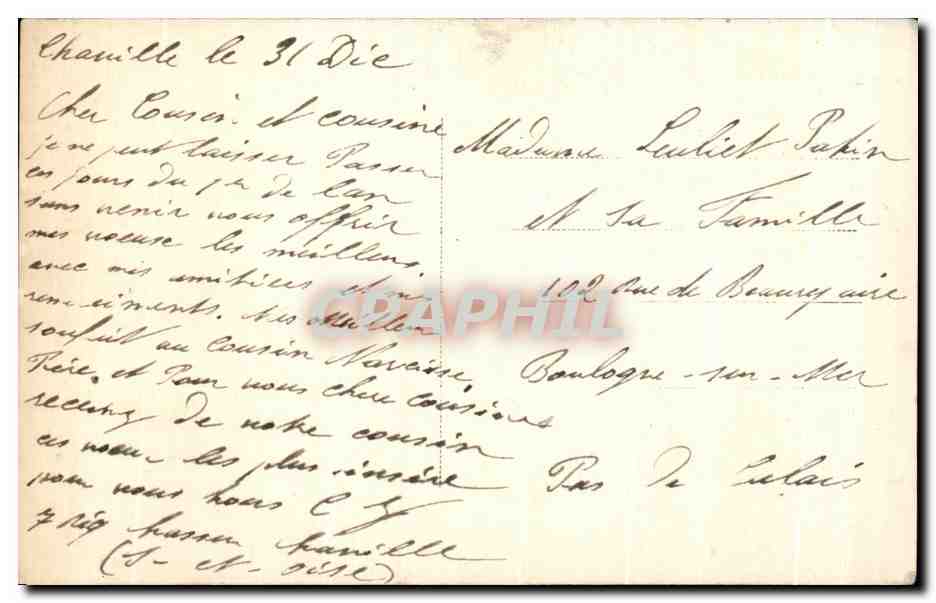 Chaville le 31 Dec
Cher Cousin et cousine
je ne peut laisser Passer
ces jours du 1er de l'an
sans venir vous offrir
mes voeuse les meilleurs
avec mes amitiees et
remerciments. les Meilleur
souhait au Cousin Narcisse
Père. et Pour vous chere cousines
recevez de votre cousin
ces voeux les plus sincère
pour vous tous
7 chasseur chaville
(S-et-oise)
Madame Leuliet Papin
et sa Famille
102 Rue de Beaurepaire
Boulogne-sur-Mer
Pas de Calais
CRAPHIL